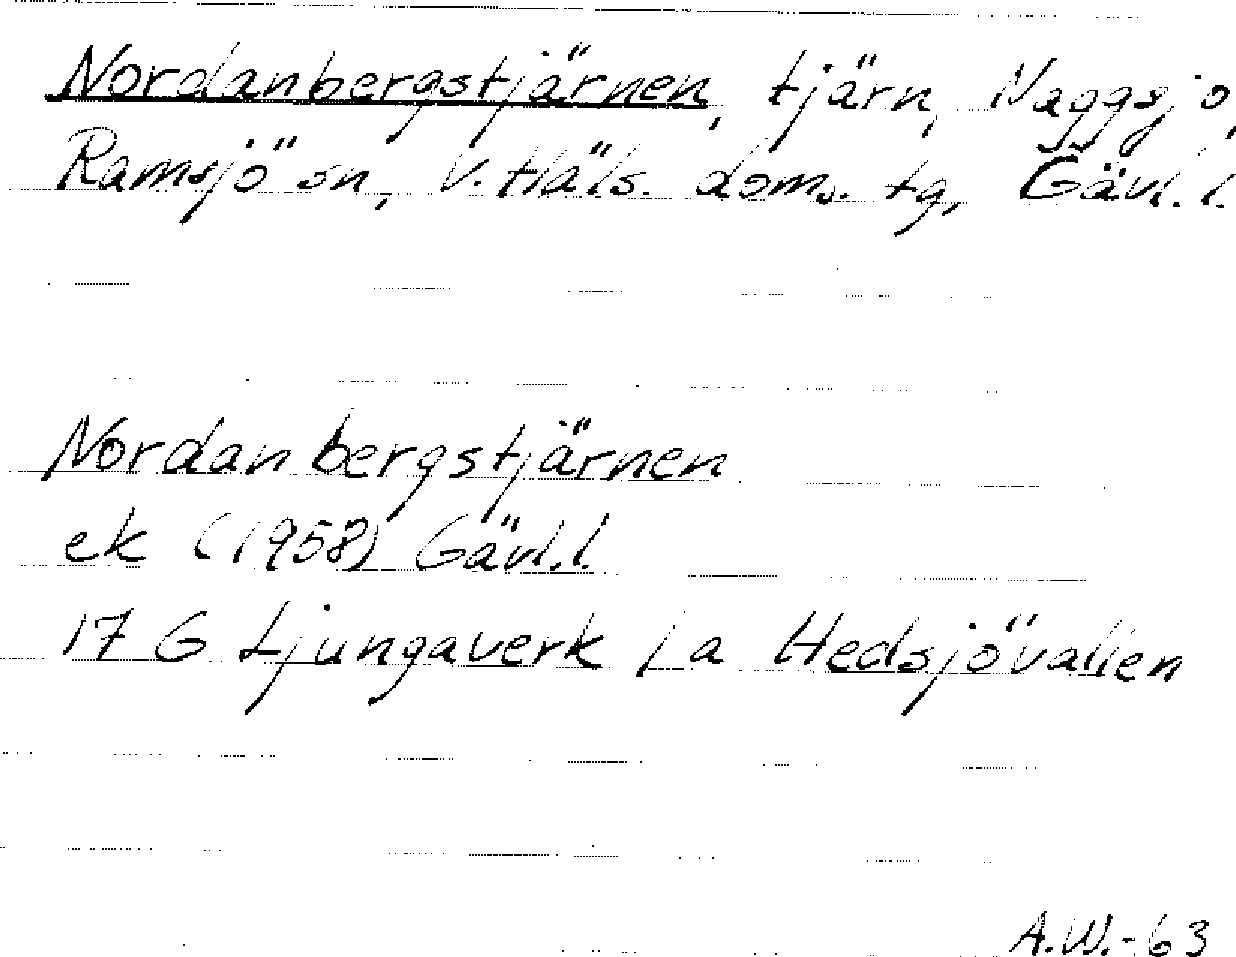 Nordanbergstjärnen, tjärn, Naggsjö,
Ramsjö sn, V. Häls. doms. tg, Gävl. l.
Nordanbergstjärnen
ek (1958) Gävl. l.
17 G Ljungaverk j a Hedsjövallen
A.W.-63